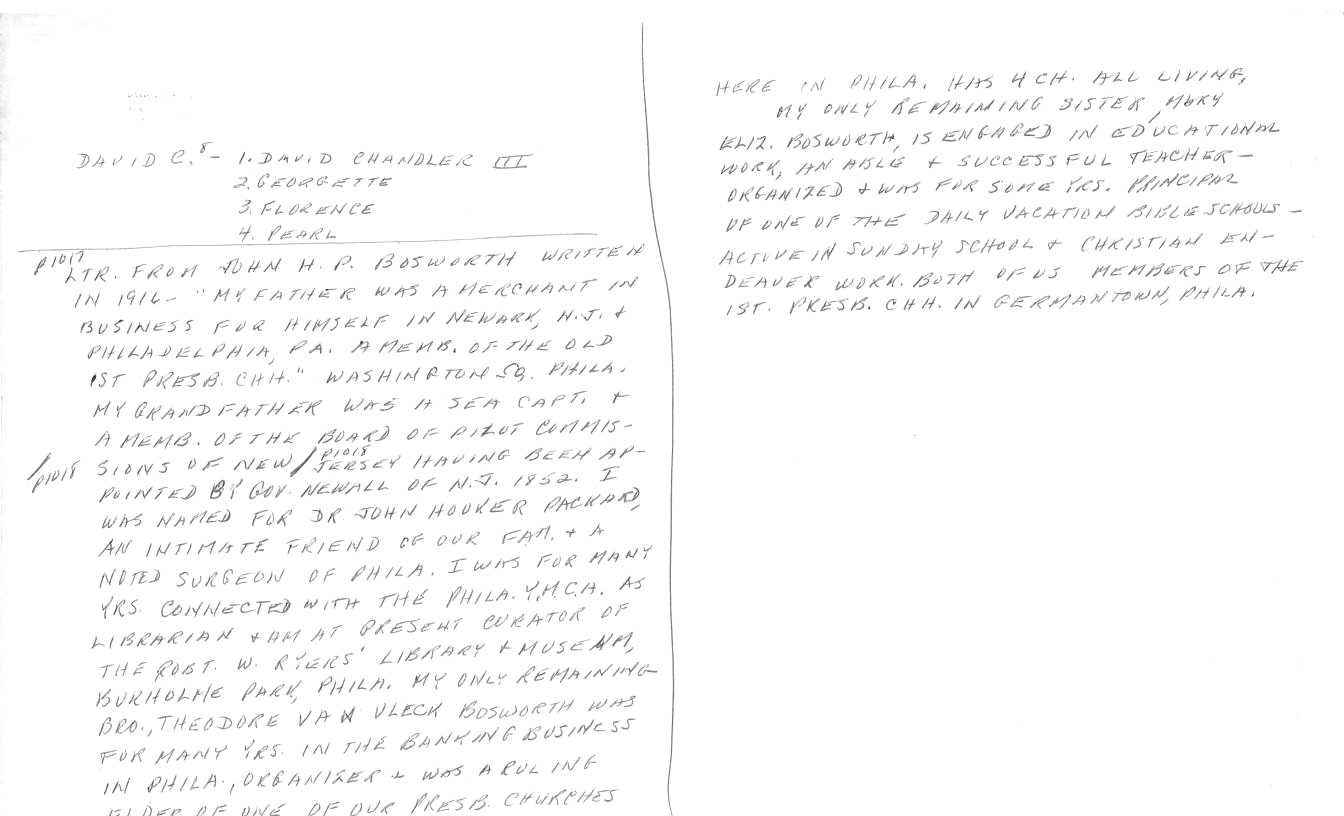 DAVID C.⁸ - 1. DAVID CHANDLER III
2. GEORGETTE
3. FLORENCE
4. PEARL
p1017
LTR. FROM JOHN H. P. BOSWORTH WRITTEN
IN 1916 - "MY FATHER WAS A MERCHANT IN
BUSINESS FOR HIMSELF IN NEWARK, N.J. +
PHILADELPHIA, PA. A MEMB. OF THE OLD
1ST PRESB. CHH." WASHINGTON SQ. PHILA.
MY GRANDFATHER WAS A SEA CAPT. +
A MEMB. OF THE BOARD OF PILOT COMMIS-
/p1018 SIONS OF NEW / p1018 JERSEY HAVING BEEN AP-
POINTED BY GOV. NEWALL OF N.J. 1852. I
WAS NAMED FOR DR JOHN HOOKER PACKARD,
AN INTIMATE FRIEND OF OUR FAM. + A
NOTED SURGEON OF PHILA. I WAS FOR MANY
YRS. CONNECTED WITH THE PHILA. Y.M.C.A. AS
LIBRARIAN + AM AT PRESENT CURATOR OF
THE ROBT. W. RYERS' LIBRARY + MUSEUM,
BURHOLME PARK, PHILA. MY ONLY REMAINING
BRO., THEODORE VAN VLECK BOSWORTH WAS
FOR MANY YRS. IN THE BANKING BUSINESS
IN PHILA., ORGANIZER + WAS A RULING
ELDER OF ONE OF OUR PRESB. CHURCHES
HERE IN PHILA. HAS 4 CH. ALL LIVING,
MY ONLY REMAINING SISTER, MARY
ELIZ. BOSWORTH, IS ENGAGED IN EDUCATIONAL
WORK, AN ABLE + SUCCESSFUL TEACHER -
ORGANIZED + WAS FOR SOME YRS. PRINCIPAL
OF ONE OF THE DAILY VACATION BIBLE SCHOOLS -
ACTIVE IN SUNDAY SCHOOL + CHRISTIAN EN-
DEAVER WORK. BOTH OF US MEMBERS OF THE
1ST. PRESB. CHH. IN GERMANTOWN, PHILA.